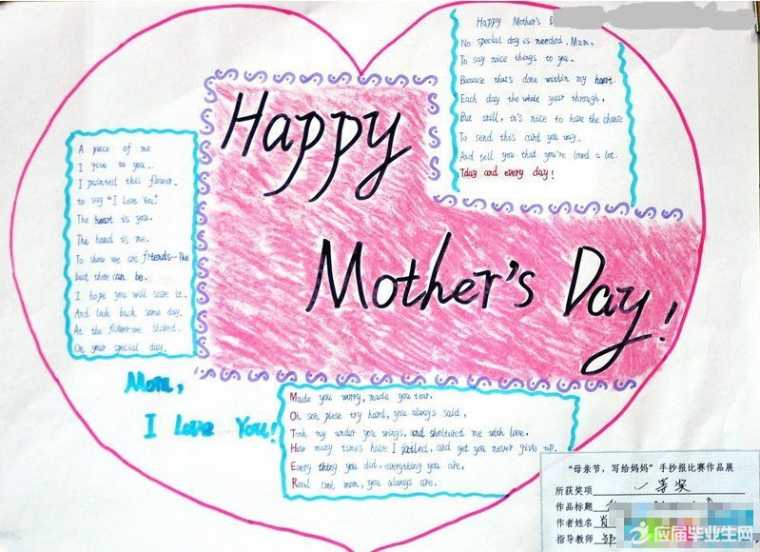 Happy Mother's D
No special day is needed, Mum,
To say nice things to you.
Because that's done within my heart
Each day the whole year through,
But still, to's nice to have the chance
To send this card you way.
And tell you that you're loved a lot.
Tday and every day!
Happy
Mother's Day!
A piece of me
I give to you.
I painted this flower.
to say "I Love You"
The heart is you.
The hand is me.
To show we are friends--the
best there can be.
I hope you will save it.
And look back some day.
At the flower we shared.
On your special day.
Mom,
I Love You!
Made you worry, made you tear.
Oh son, please try hard, you always said,
Took my under you wings, and sheltered me with love.
How many times have I failed, and yet you never give up.
Every thing you did, everything you are,
Real cool mom, you always are.
"母亲节，写给妈妈"手抄报比赛作品展
所获奖项 一等奖
作品标题
作者姓名 肖
指导教师 邹
应届毕业生网